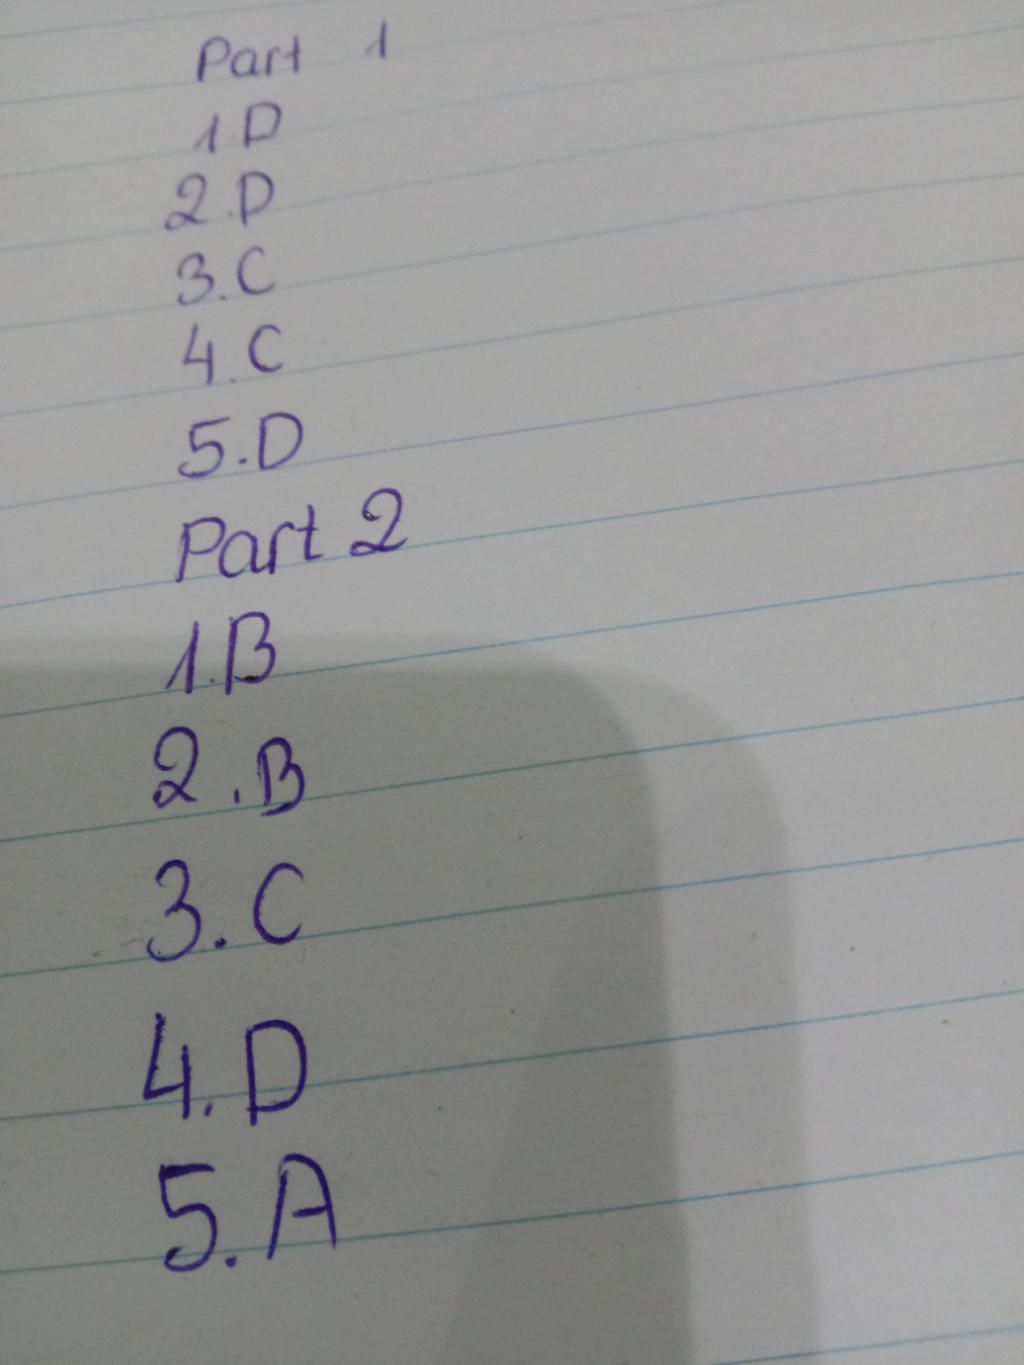 Part 1
1.D
2.D
3.C
4.C
5.D
Part 2
1.B
2.B
3.C
4.D
5.A